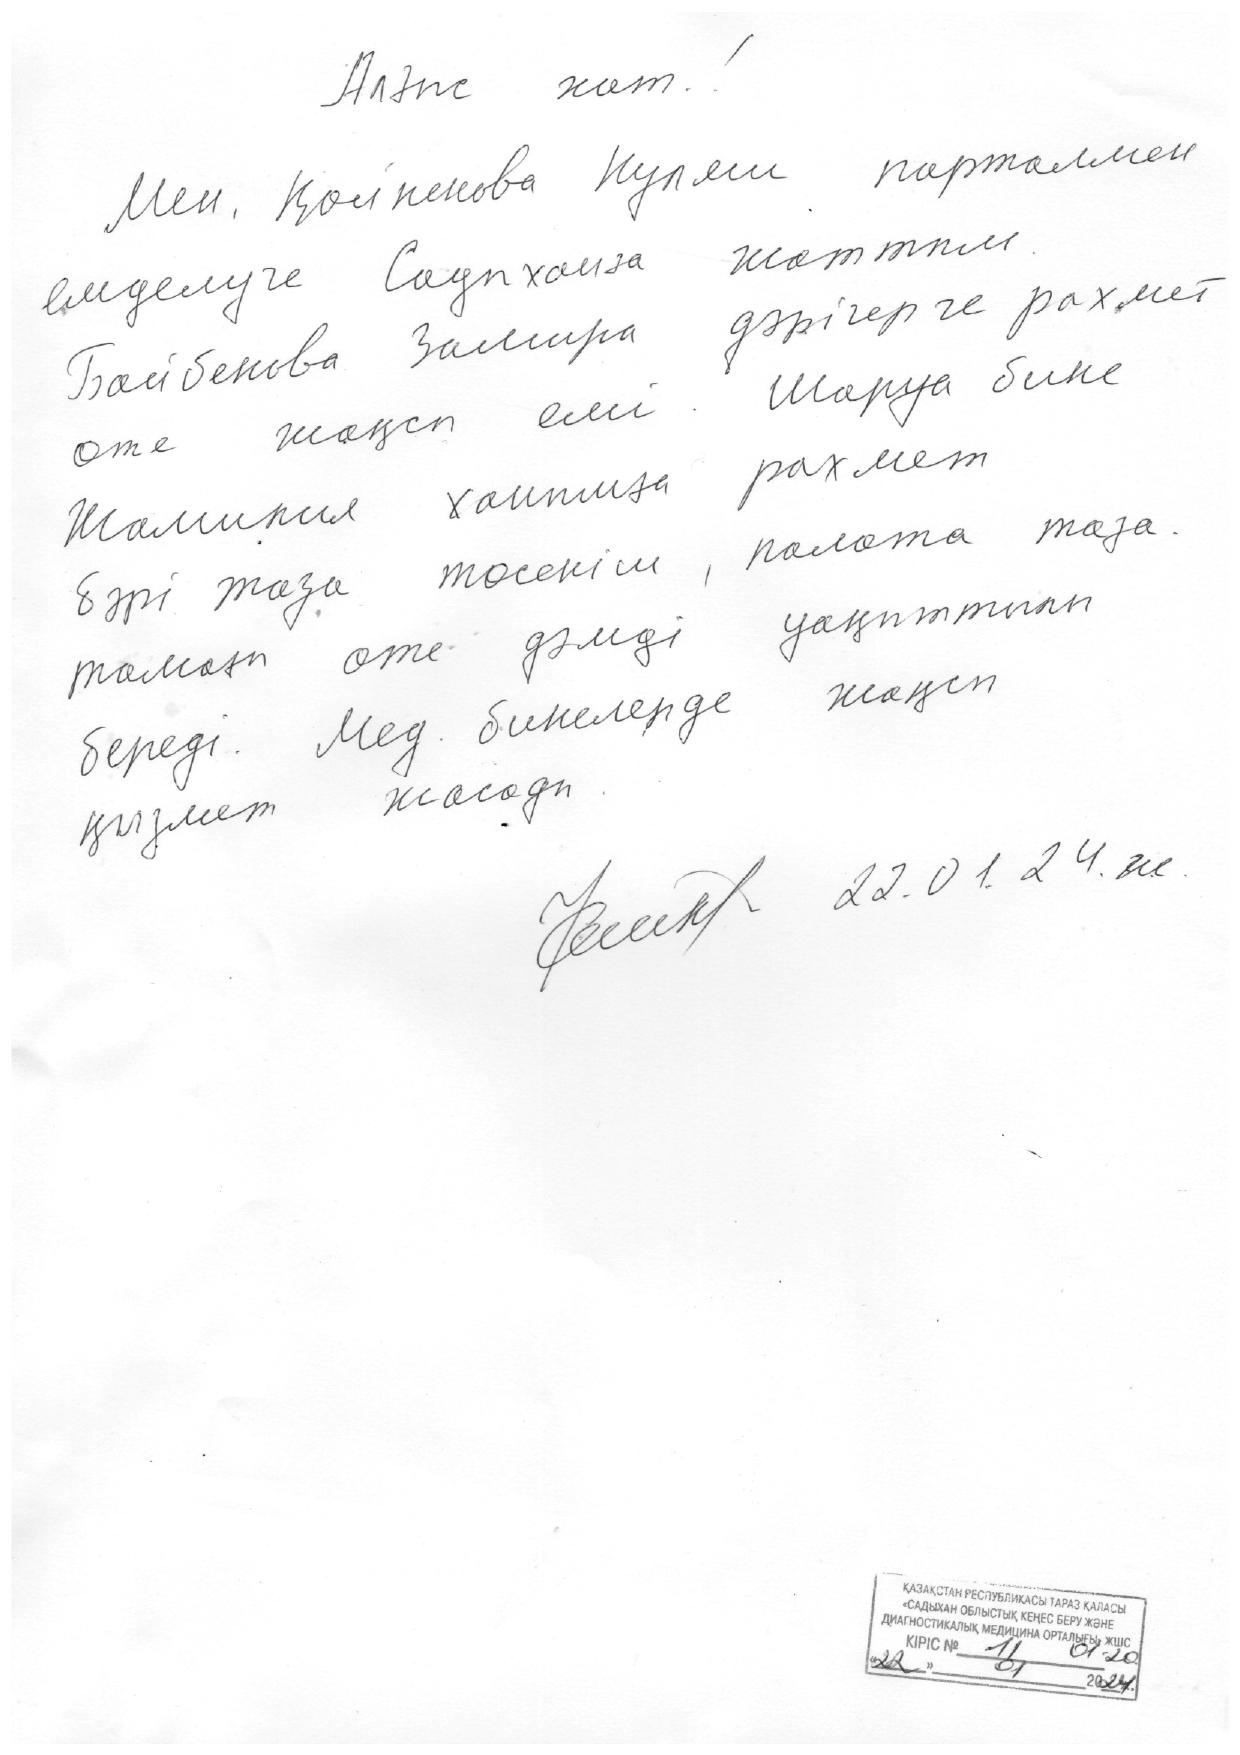 Алғыс хат!
Мен, Қойшекова Күляш порталмен
емделуге Садыханға жаттым.
Байбекова Замира дәрігерге рахмет
өте жақсы емі. Шаруа бике
Жамиля ханымға рахмет
бәрі таза төсеніш, палата таза.
тамағы өте дәмді уақыттылы
береді. Мед. бикелерде жақсы
қызмет жасады.
22.01.24.ж.
ҚАЗАҚСТАН РЕСПУБЛИКАСЫ ТАРАЗ ҚАЛАСЫ
«САДЫХАН ОБЛЫСТЫҚ КЕҢЕС БЕРУ ЖӘНЕ
ДИАГНОСТИКАЛЫҚ МЕДИЦИНА ОРТАЛЫҒЫ» ЖШС
КІРІС № 11 01-20
«22» 01 2024.